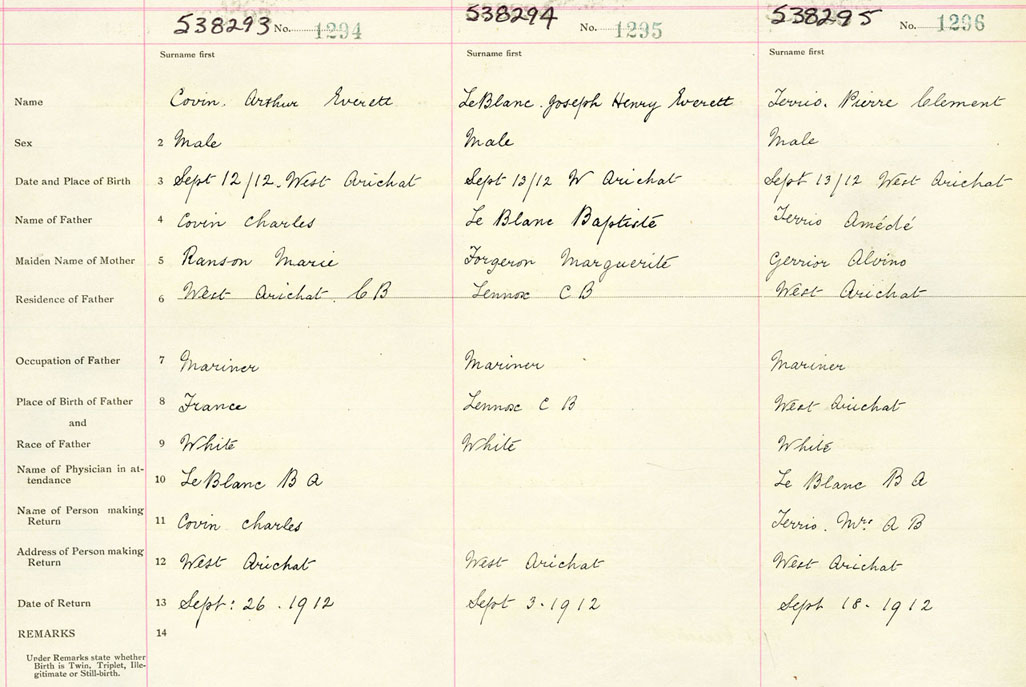 538293 No. 1294 538294 No. 1295 538295 No. 1296
Surname first Surname first Surname first
Name Covin, Arthur Everett LeBlanc. Joseph Henry Everett Terrio. Pierre Clement
Sex 2 Male Male Male
Date and Place of Birth 3 Sept 12/12. West Arichat Sept 13/12 W Arichat Sept 13/12 West Arichat
Name of Father 4 Covin Charles Le Blanc Baptiste Terrio Amédé
Maiden Name of Mother 5 Ranson Marie Forgeron Marguerite Gerrior Alvino
Residence of Father 6 West Arichat. C B Lennox C B West Arichat
Occupation of Father 7 Mariner Mariner Mariner
Place of Birth of Father 8 France Lennox C B West Arichat
and
Race of Father 9 White White White
Name of Physician in at-
tendance 10 Le Blanc B A Le Blanc B A
Name of Person making
Return 11 Covin Charles Terrio. Mrs A B
Address of Person making
Return 12 West Arichat West Arichat West Arichat
Date of Return 13 Sept: 26. 1912 Sept 3. 1912 Sept 18. 1912
REMARKS 14
Under Remarks state whether
Birth is Twin, Triplet, Ille-
gitimate or Still-birth.